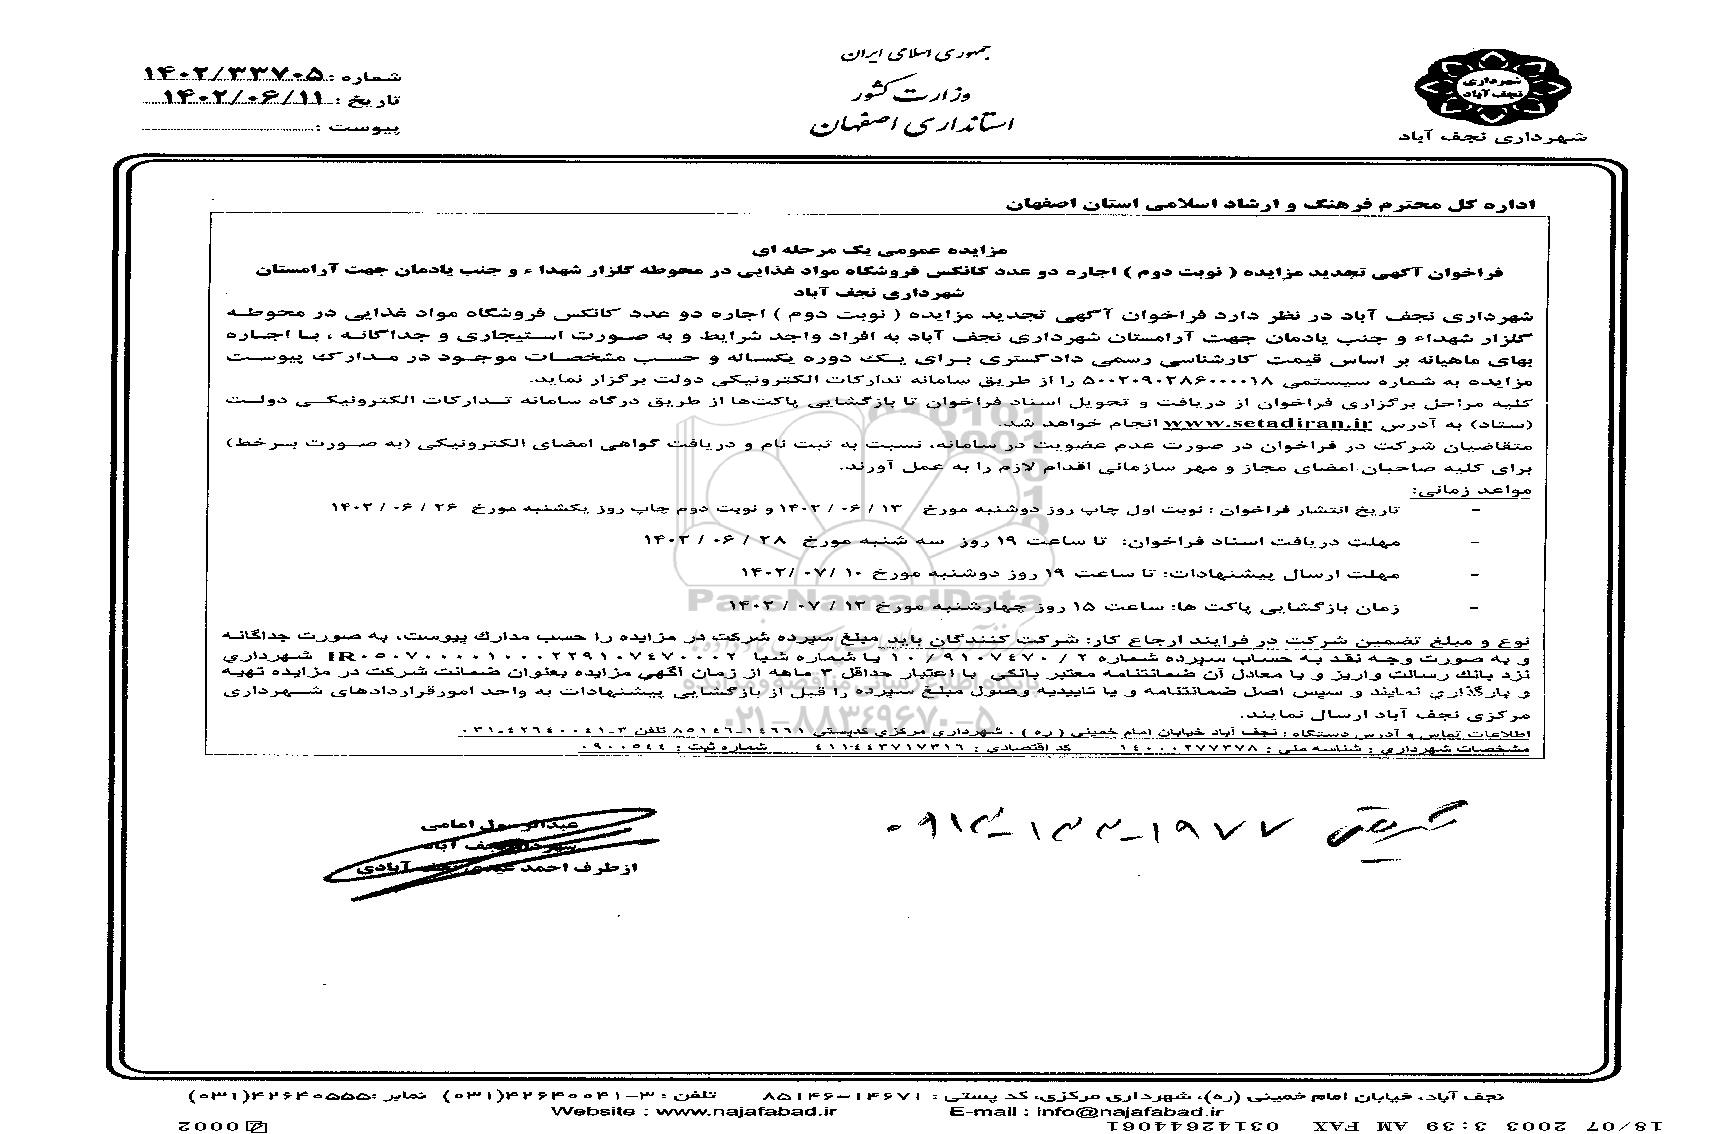 جمهوری اسلامی ایران
وزارت کشور
استانداری اصفهان
شهرداری نجف آباد
شهرداری نجف آباد
شماره : ۱۴۰۲/۳۳۷۰۵
تاریخ : ۱۴۰۲/۰۶/۱۱
پیوست :
اداره کل محترم فرهنگ و ارشاد اسلامی استان اصفهان
مزایده عمومی یک مرحله ای
فراخوان آگهی تجدید مزایده ( نوبت دوم ) اجاره دو عدد کانکس فروشگاه مواد غذایی در محوطه گلزار شهداء و جنب یادمان جهت آرامستان
شهرداری نجف آباد
شهرداری نجف آباد در نظر دارد فراخوان آگهی تجدید مزایده ( نوبت دوم ) اجاره دو عدد کانکس فروشگاه مواد غذایی در محوطه
گلزار شهداء و جنب یادمان جهت آرامستان شهرداری نجف آباد به افراد واجد شرایط و به صورت استیجاری و جداگانه ، با اجاره
بهای ماهیانه بر اساس قیمت کارشناسی رسمی دادگستری برای یک دوره یکساله و حسب مشخصات موجود در مدارک پیوست
مزایده به شماره سیستمی ۵۰۰۲۰۹۰۲۸۶۰۰۰۰۱۸ را از طریق سامانه تدارکات الکترونیکی دولت برگزار نماید.
کلیه مراحل برگزاری فراخوان از دریافت و تحویل اسناد فراخوان تا بازگشایی پاکت‌ها از طریق درگاه سامانه تدارکات الکترونیکی دولت
(ستاد) به آدرس www.setadiran.ir انجام خواهد شد.
متقاضیان شرکت در فراخوان در صورت عدم عضویت در سامانه، نسبت به ثبت نام و دریافت گواهی امضای الکترونیکی (به صورت برخط)
برای کلیه صاحبان امضای مجاز و مهر سازمانی اقدام لازم را به عمل آورند.
مواعد زمانی:
- تاریخ انتشار فراخوان : نوبت اول چاپ روز دوشنبه مورخ ۱۳ / ۰۶ / ۱۴۰۲ و نوبت دوم چاپ روز یکشنبه مورخ ۲۶ / ۰۶ / ۱۴۰۲
- مهلت دریافت اسناد فراخوان: تا ساعت ۱۹ روز سه شنبه مورخ ۲۸ / ۰۶ / ۱۴۰۲
- مهلت ارسال پیشنهادات: تا ساعت ۱۹ روز دوشنبه مورخ ۱۰ /۰۷ /۱۴۰۲
- زمان بازگشایی پاکت ها: ساعت ۱۵ روز چهارشنبه مورخ ۱۲ / ۰۷ / ۱۴۰۲
نوع و مبلغ تضمین شرکت در فرایند ارجاع کار: شرکت کنندگان باید مبلغ سپرده شرکت در مزایده را حسب مدارک پیوست، به صورت جداگانه
و به صورت وجه نقد به حساب سپرده شماره ۲ / ۹۱۰۷۴۷۰ / ۱۰ یا شماره شبا IR۰۵۰۷۰۰۰۰۱۰۰۰۲۲۹۱۰۷۴۷۰۰۰۲ شهرداری
نزد بانک رسالت واریز و یا معادل آن ضمانتنامه معتبر بانکی با اعتبار حداقل ۳ ماهه از زمان آگهی مزایده بعنوان ضمانت شرکت در مزایده تهیه
و بارگذاری نمایند و سپس اصل ضمانتنامه و یا تاییدیه وصول مبلغ سپرده را قبل از بازگشایی پیشنهادات به واحد امورقراردادهای شهرداری
مرکزی نجف آباد ارسال نمایند.
اطلاعات تماس و آدرس دستگاه : نجف آباد خیابان امام خمینی ( ره ) ، شهرداری مرکزی کدپستی ۱۴۶۶۱-۸۵۱۴۶ تلفن ۳-۴۲۶۴۰۰۴۱-۰۳۱
مشخصات شهرداری : شناسه ملی : ۱۴۰۰۰۲۷۷۳۷۸ کد اقتصادی : ۴۱۱۴۴۳۷۱۷۳۱۶ شماره ثبت : ۰۹۰۰۵۴۴
ParsNamadData
پایگاه اطلاع رسانی مناقصه و مزایده
۰۲۱-۸۸۳۴۹۶۷۰-۵
عبدالرسول امامی
شهردار نجف آباد
ازطرف احمد نجف آبادی
نجف آباد، خیابان امام خمینی (ره)، شهرداری مرکزی، کد پستی : ۱۴۶۷۱-۸۵۱۴۶ تلفن : ۳-۴۲۶۴۰۰۴۱(۰۳۱) نمابر :۴۲۶۴۰۵۵۵(۰۳۱)
Website : www.najafabad.ir E-mail : info@najafabad.ir
18/07 2003 3:39 AM FAX 03142644061 0002